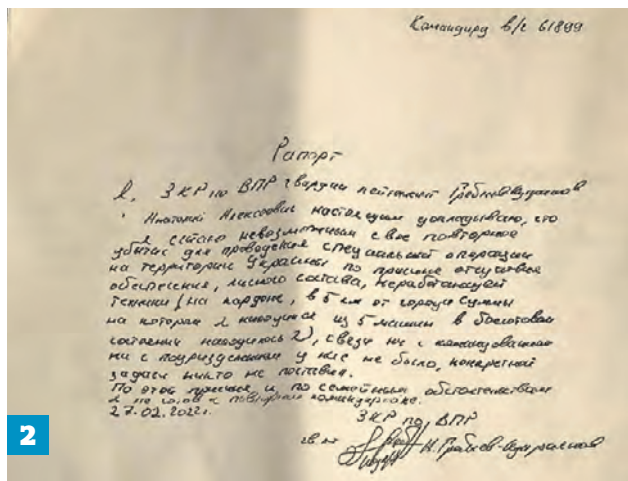 Командиру в/ч 61899
Рапорт
Я, ЗКР по ВПР гвардии лейтенант
Анатолий Алексеевич настоящим докладываю, что
я считаю невозможным свое повторное
убытие для проведения специальной операции
на территории Украины по причине отсутствия
обеспечения, личного состава, неработающей
техники (на кордоне, в 5 км от города Сумы
на котором я находился из 5 машин в боеготовом
состоянии находилось 2), связи ни с командованием
ни с подразделением у нас не было, конкретной
задачи никто не поставил.
По этой причине и по семейным обстоятельствам
я не готов к повторной командировке.
27.02.2022г.
ЗКР по ВПР
гв. л-т
2